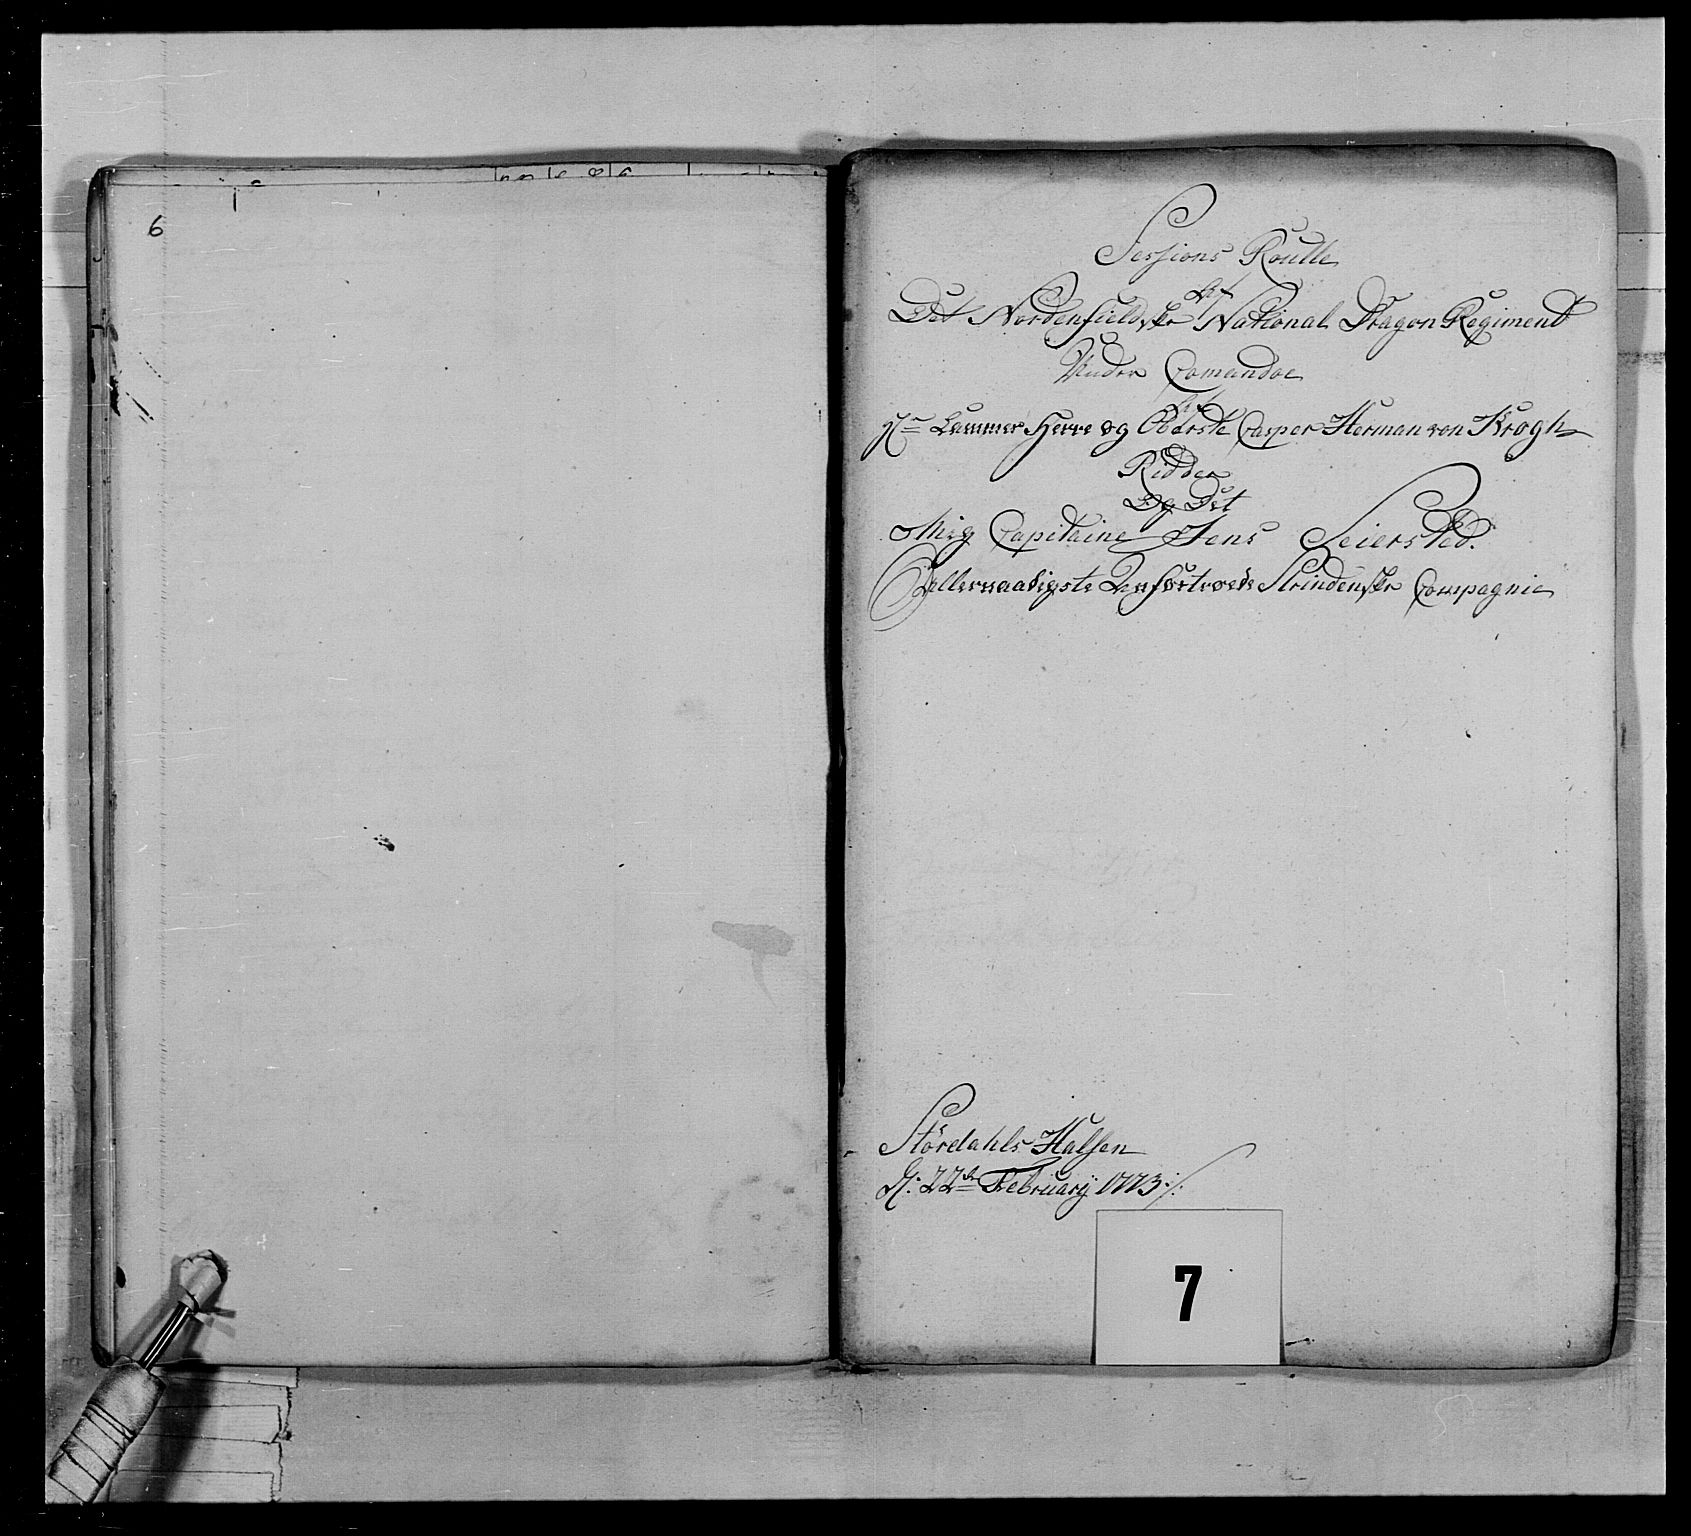 6
Sessions Roulle
Af
Det Nordenfieldske National Dragon Regiment
Under Comandoe
Af
Hr Cammer Herre og Oberste Casper Herman von Krogh
Ridder
Og Det
Mig Capitaine Jens Seiersted.
Allernaadigste Anfortroede Strindenske Compagnie
Størdahls Halsen
D: 22de February 1773 ./.
7